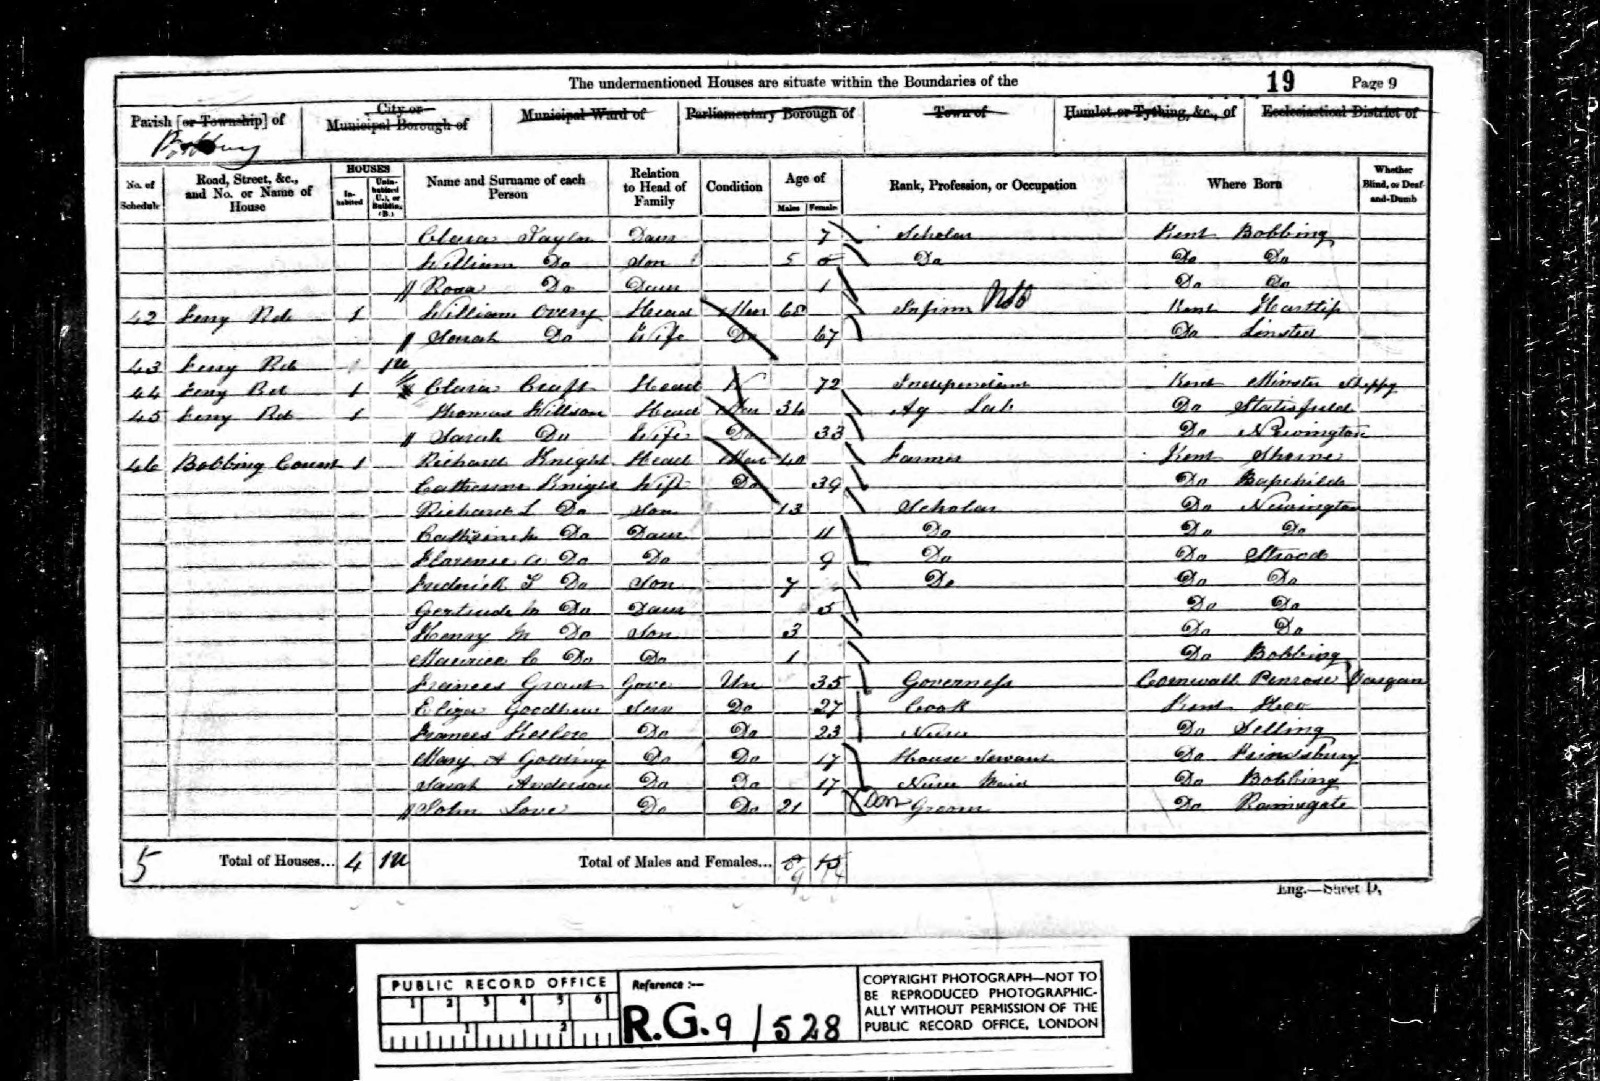 The undermentioned Houses are situate within the Boundaries of the 19 Page 9
Parish [or Township] of City or Municipal Borough of Municipal Ward of Parliamentary Borough of Town of Hamlet or Tything, &c., of Ecclesiastical District of
Bobbing
No. of Schedule Road, Street, &c., and No. or Name of House HOUSES Inhabited Uninhabited (U.), or Building (B.) Name and Surname of each Person Relation to Head of Family Condition Age of Males Females Rank, Profession, or Occupation Where Born Whether Blind, or Deaf-and-Dumb
Clara Taylor Daur 7 Scholar Kent Bobbing
William Do Son 5 Do Do Do
Rosa Do Daur 1 Do Do
42 Ferry Rd 1 William Overy Head Mar 68 Infirm Kent Hartlip
Sarah Do Wife Do 67 Do Linsted
43 Ferry Rd 1U
44 Ferry Rd 1 Clara Head W 72 Independent Kent Minster Sheppy
45 Ferry Rd 1 Thomas Willson Head Mar 34 Ag Lab Do
Sarah Do Wife Do 33 Do Newington
46 Bobbing Court 1 Richard Knight Head Mar 40 Farmer Kent Shorne
Catherine Knight Wife Do 39 Do Bapchild
Richard L Do Son 13 Scholar Do Newington
Catherine Do Daur 11 Do Do Do
Florence A Do Do 9 Do Do Strood
Frederick T Do Son 7 Do Do Do
Gertrude Do Daur 5 Do Do
Henry M Do Son 3 Do Do
Maurice C Do Do 1 Do Bobbing
Frances Grant Gove Un 35 Governess Cornwall Penrose
Eliza Goodhew Serv Do 27 Cook Kent Hoo
Frances Do Do 23 Nurse Do Selling
Mary A Golding Do Do 17 House Servant Do Frindsbury
Sarah Anderson Do Do 17 Nurse Maid Do Bobbing
John Love Do Do 21 Groom Do Ramsgate
5 Total of Houses... 4 1U Total of Males and Females...
Eng.—Sheet D.
PUBLIC RECORD OFFICE
1 2 3 4 5 6
1 2
Reference :—
R.G. 9 / 528
COPYRIGHT PHOTOGRAPH—NOT TO
BE REPRODUCED PHOTOGRAPHIC-
ALLY WITHOUT PERMISSION OF THE
PUBLIC RECORD OFFICE, LONDON